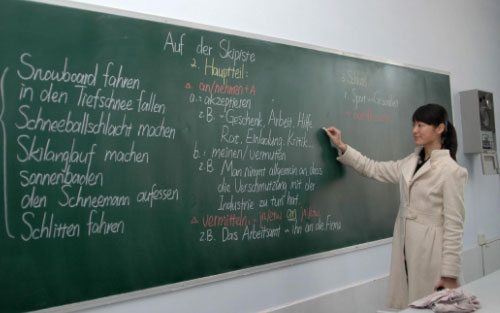 Auf der Skipiste
Snowboard fahren
in den Tiefschnee fallen
Schneeballschlacht machen
Skilanglauf machen
sonnenbaden
den Schneemann aufessen
Schlitten fahren
2. Hauptteil:
a. an/nehmen + A
a.: akzeptieren
z.B. - Geschenk, Arbeit, Hilfe,
Rat, Einladung, Kritik...
b.: meinen/vermuten
z.B. Man nimmt allgemein an, dass
die Verschmutzung mit der
Industrie zu tun hat.
a. vermitteln - jn/etw an jn/etw
z.B. Das Arbeitsamt - ihn an die Firma
3. Schluß
Sport - Gesundheit